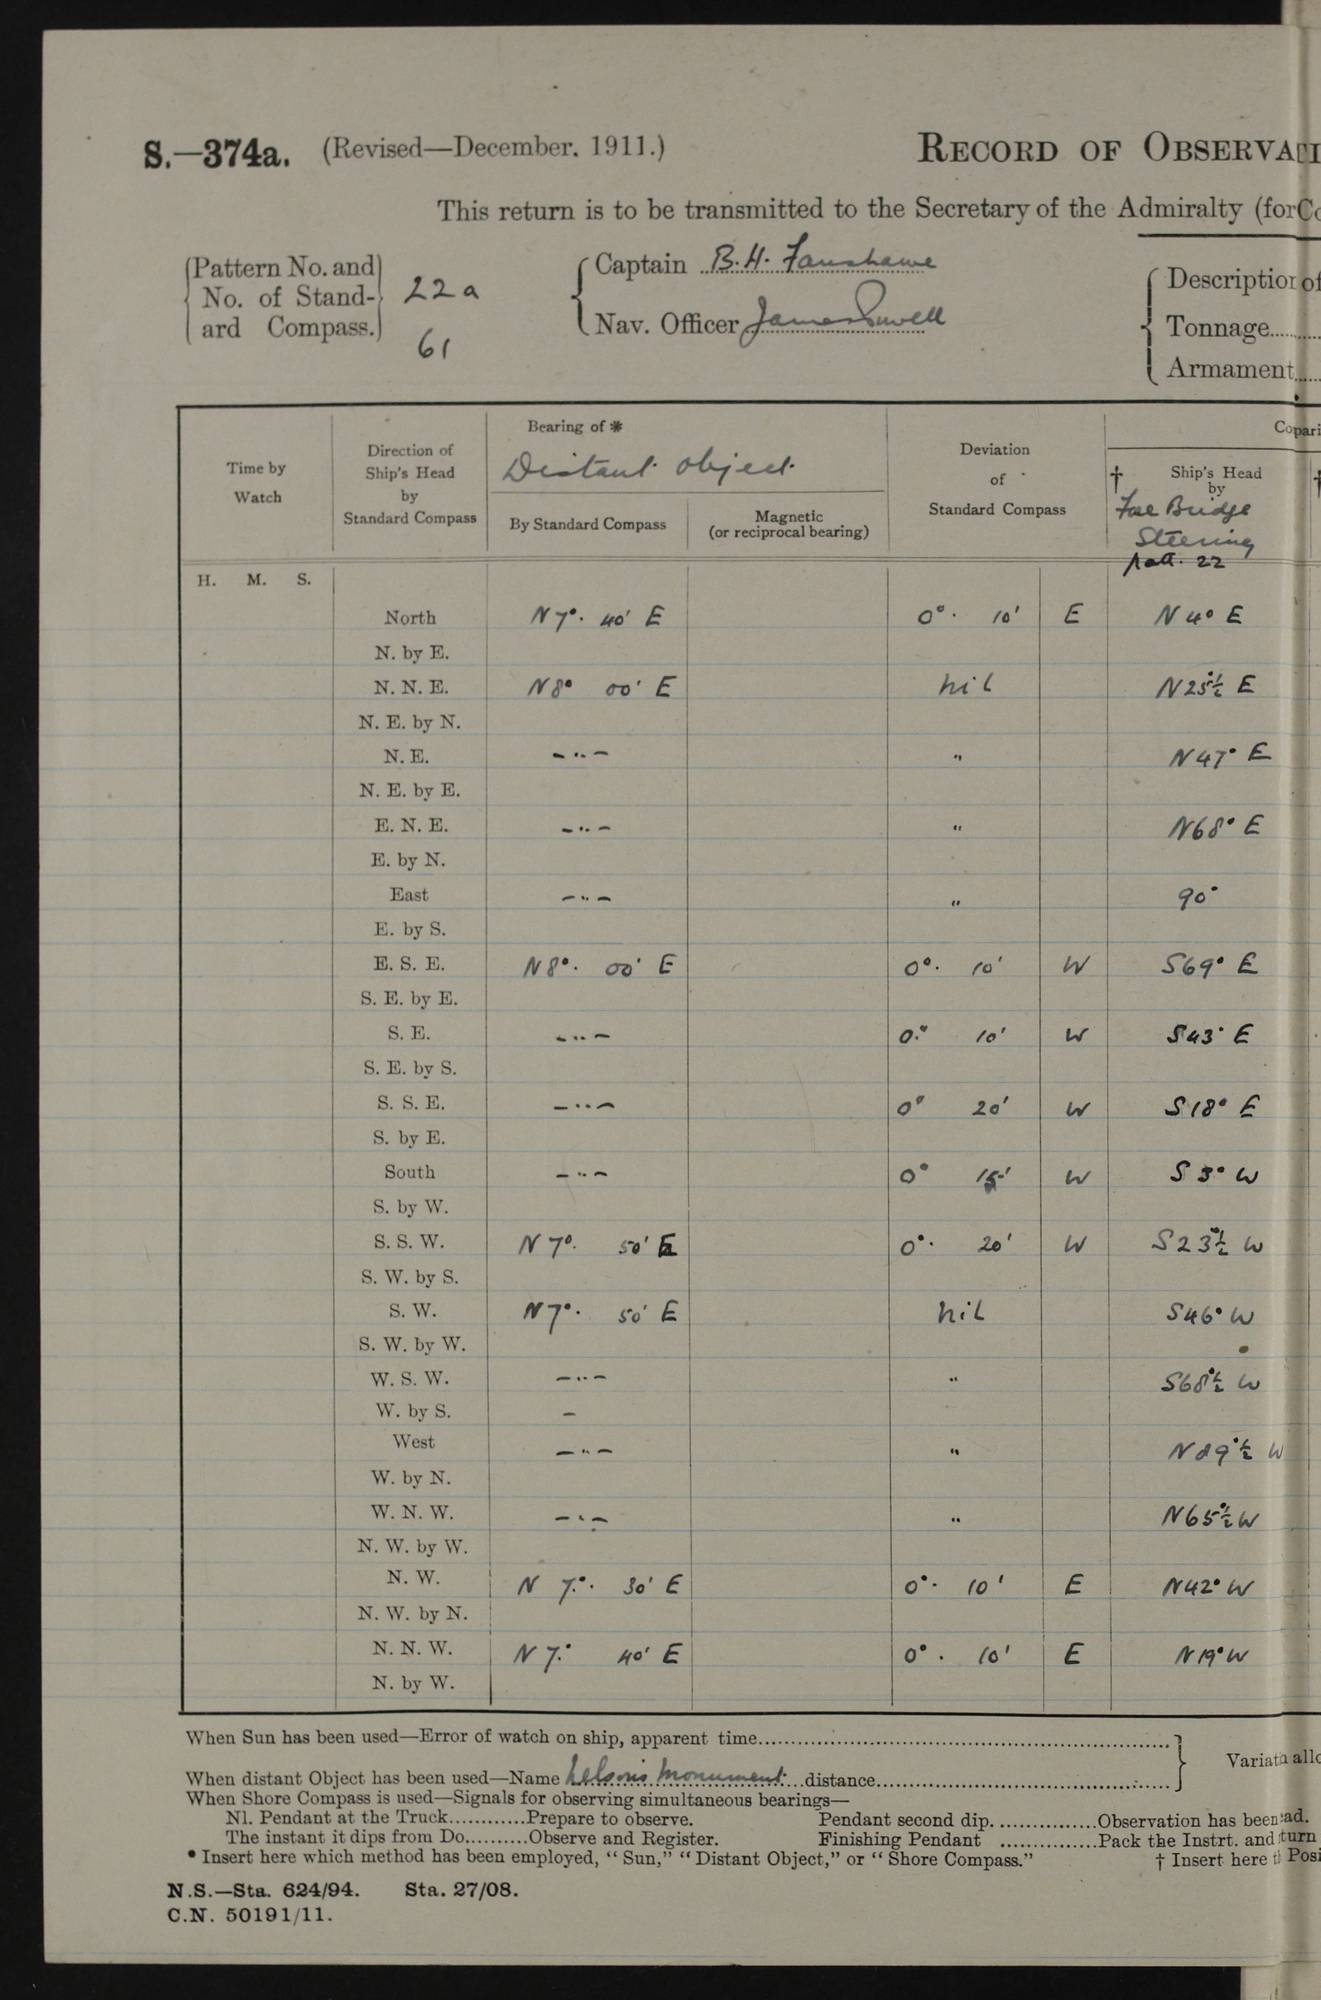 S.—374a. (Revised—December. 1911.) RECORD OF OBSERVATI
This return is to be transmitted to the Secretary of the Admiralty (for Co
Pattern No. and No. of Standard Compass. 22a 61
Captain B.H. Fanshawe
Nav. Officer James Powell
Description of
Tonnage
Armament
Time by Watch
Direction of Ship's Head by Standard Compass
Bearing of * Distant object
By Standard Compass
Magnetic (or reciprocal bearing)
Deviation of Standard Compass
Copari
† Ship's Head by Fore Bridge Steering Patt. 22
†
H. M. S.
North N 7° 40' E 0° 10' E N 4° E
N. by E.
N. N. E. N 8° 00' E nil N 25°½ E
N. E. by N.
N. E. — " — " N 47° E
N. E. by E.
E. N. E. — " — " N 68° E
E. by N.
East — " — " 90°
E. by S.
E. S. E. N 8° 00' E 0° 10' W S 69° E
S. E. by E.
S. E. — " — 0° 10' W S 43° E
S. E. by S.
S. S. E. — " — 0° 20' W S 18° E
S. by E.
South — " — 0° 15' W S 3° W
S. by W.
S. S. W. N 7° 50' E 0° 20' W S 23°½ W
S. W. by S.
S. W. N 7° 50' E nil S 46° W
S. W. by W.
W. S. W. — " — " S 68°½ W
W. by S. —
West — " — " N 89°½ W
W. by N.
W. N. W. — " — " N 65°½ W
N. W. by W.
N. W. N 7° 30' E 0° 10' E N 42° W
N. W. by N.
N. N. W. N 7° 40' E 0° 10' E N 19° W
N. by W.
When Sun has been used—Error of watch on ship, apparent time
When distant Object has been used—Name Nelson's Monument distance
Variat allo
When Shore Compass is used—Signals for observing simultaneous bearings—
Nl. Pendant at the Truck............Prepare to observe. Pendant second dip. ...............Observation has been ad.
The instant it dips from Do..........Observe and Register. Finishing Pendant ...............Pack the Instrt. and turn
* Insert here which method has been employed, "Sun," "Distant Object," or "Shore Compass." † Insert here t Posi
N.S.—Sta. 624/94. Sta. 27/08.
C.N. 50191/11.